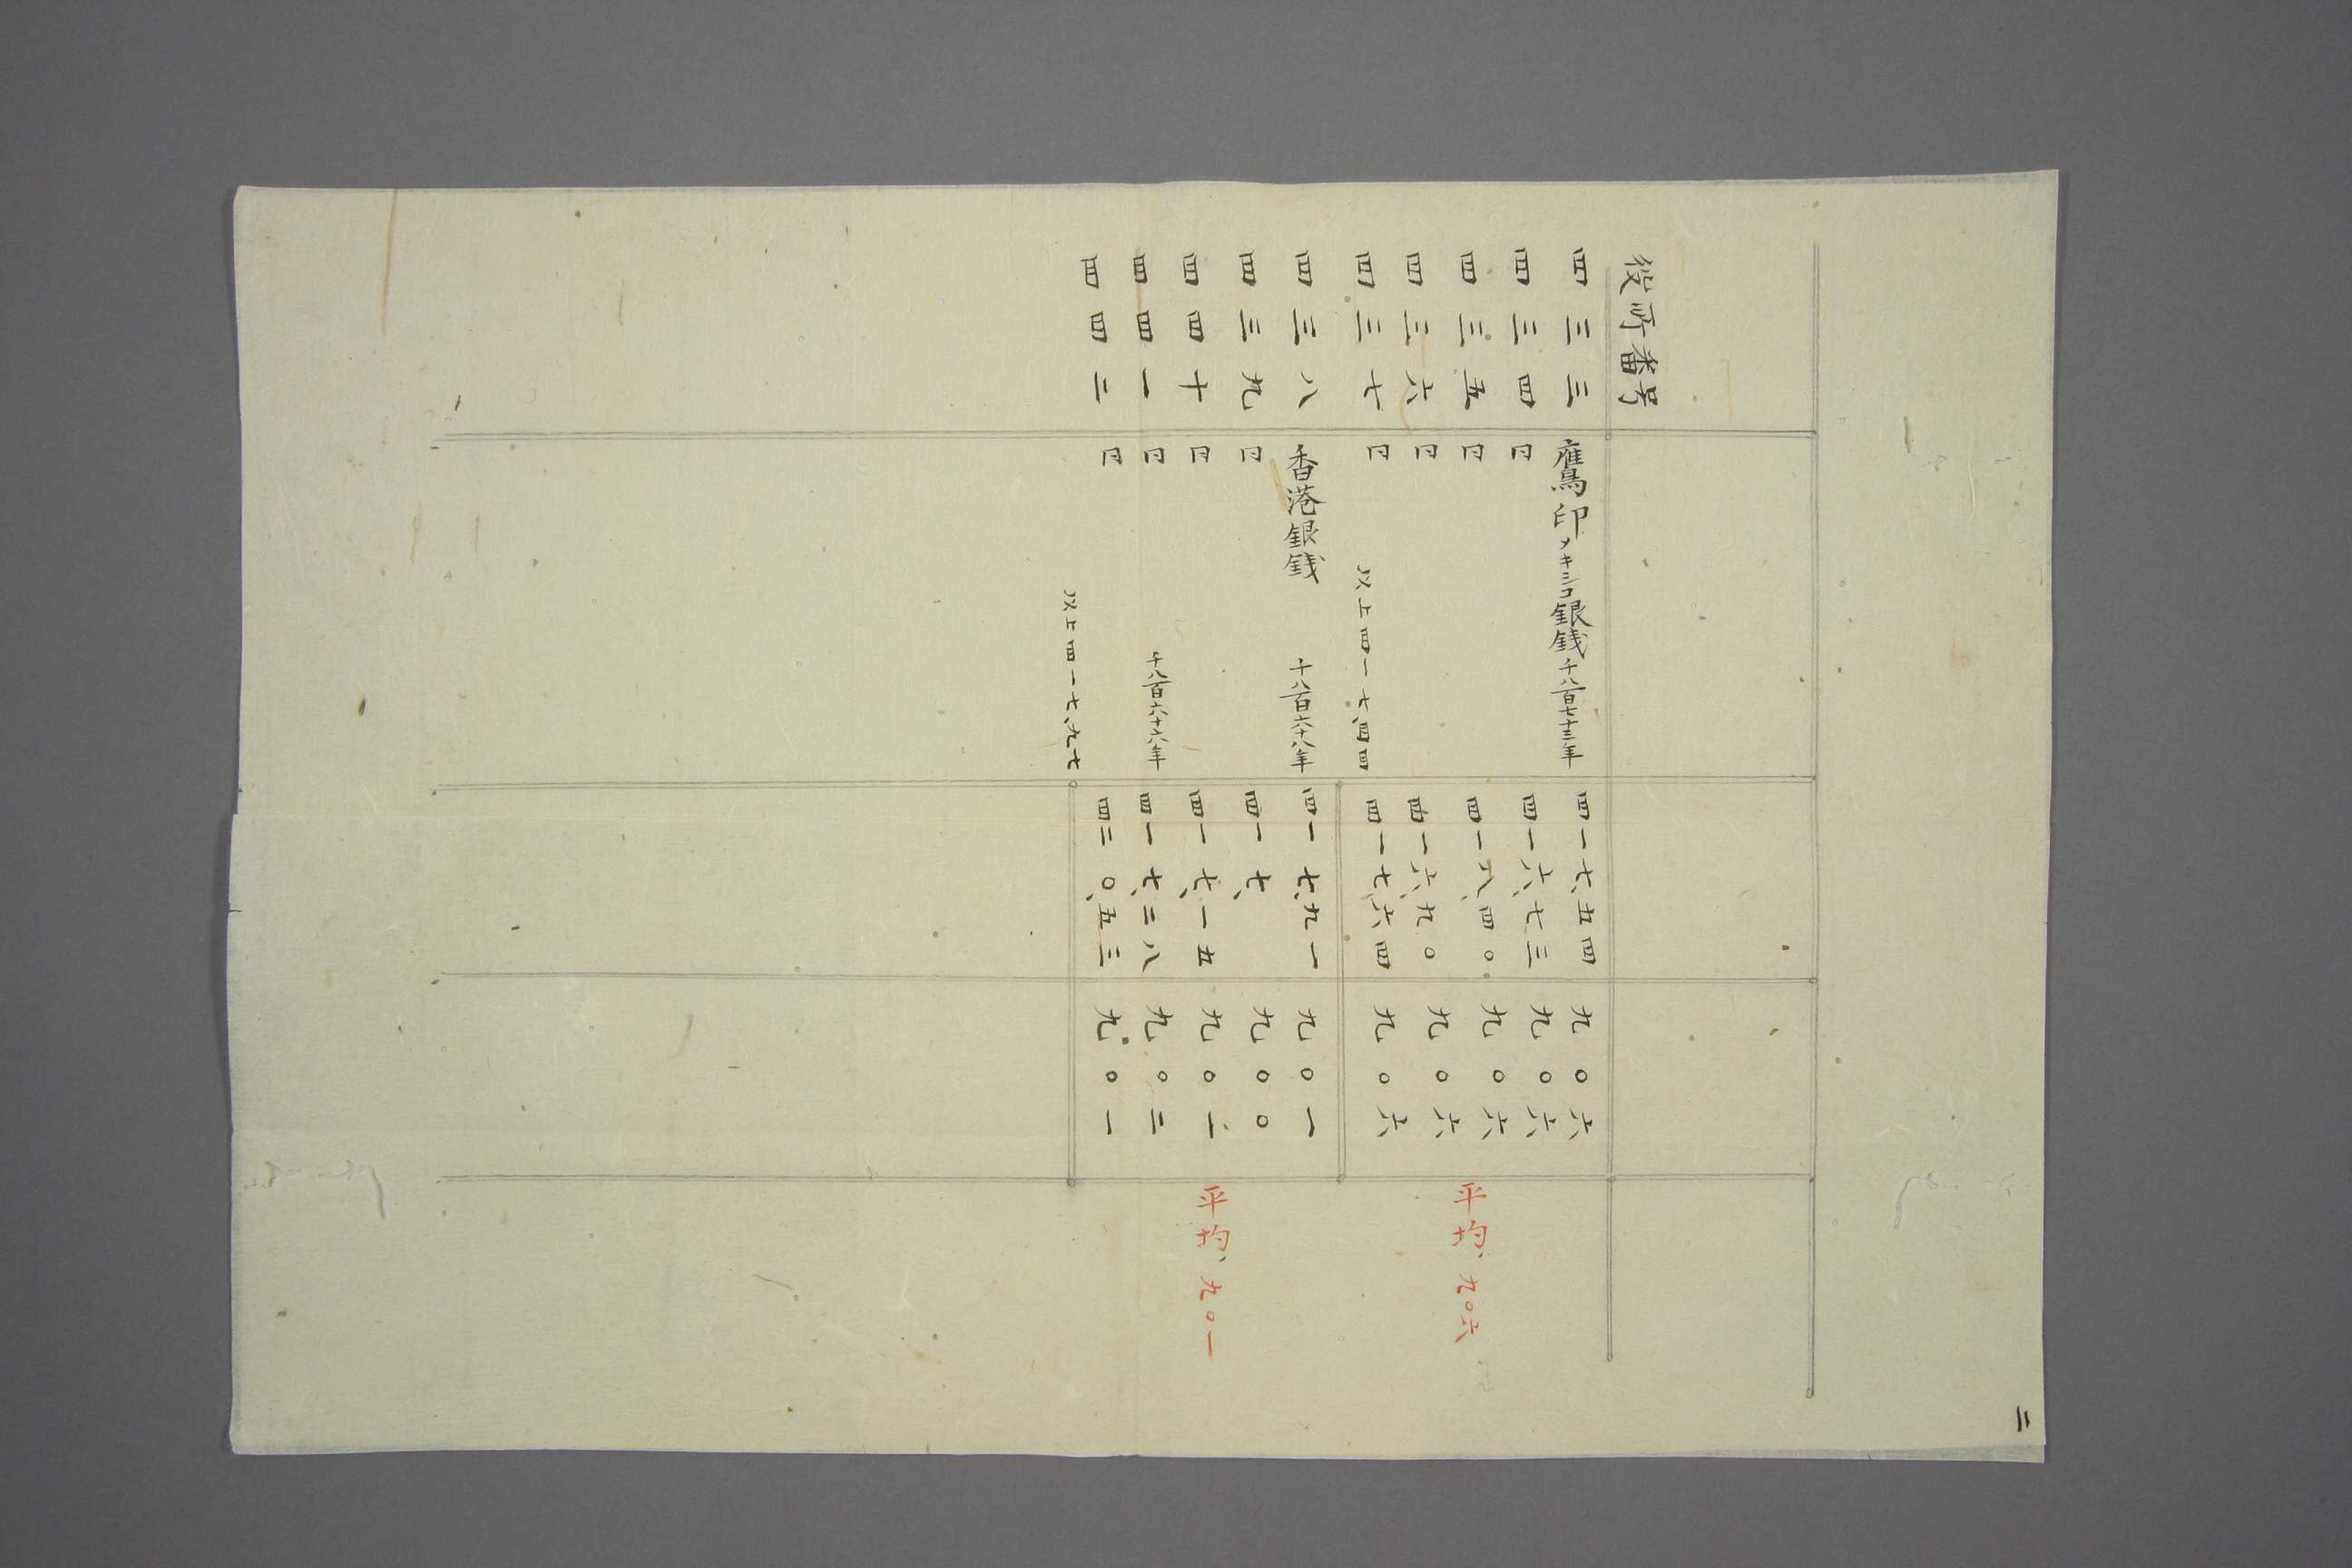 役所番号
四三三 鷹印メキシコ銀銭千八百七十三年 四一七、五四 九〇六
四三四 同 四一六、七三 九〇六
四三五 同 四一八、四〇 九〇六 平均、九〇六
四三六 同 四一六、九〇 九〇六
四三七 同 四一七、六四 九〇六
以上四一七、四四
四三八 香港銀銭 千八百六十八年 四一七、九一 九〇一
四三九 同 四一七、 九〇〇
四四十 同 四一七、一五 九〇一 平均、九〇一
四四一 同 千八百六十六年 四一七、二八 九〇二
四四二 同 四二〇、五三 九〇一
以上四一七、九七
二